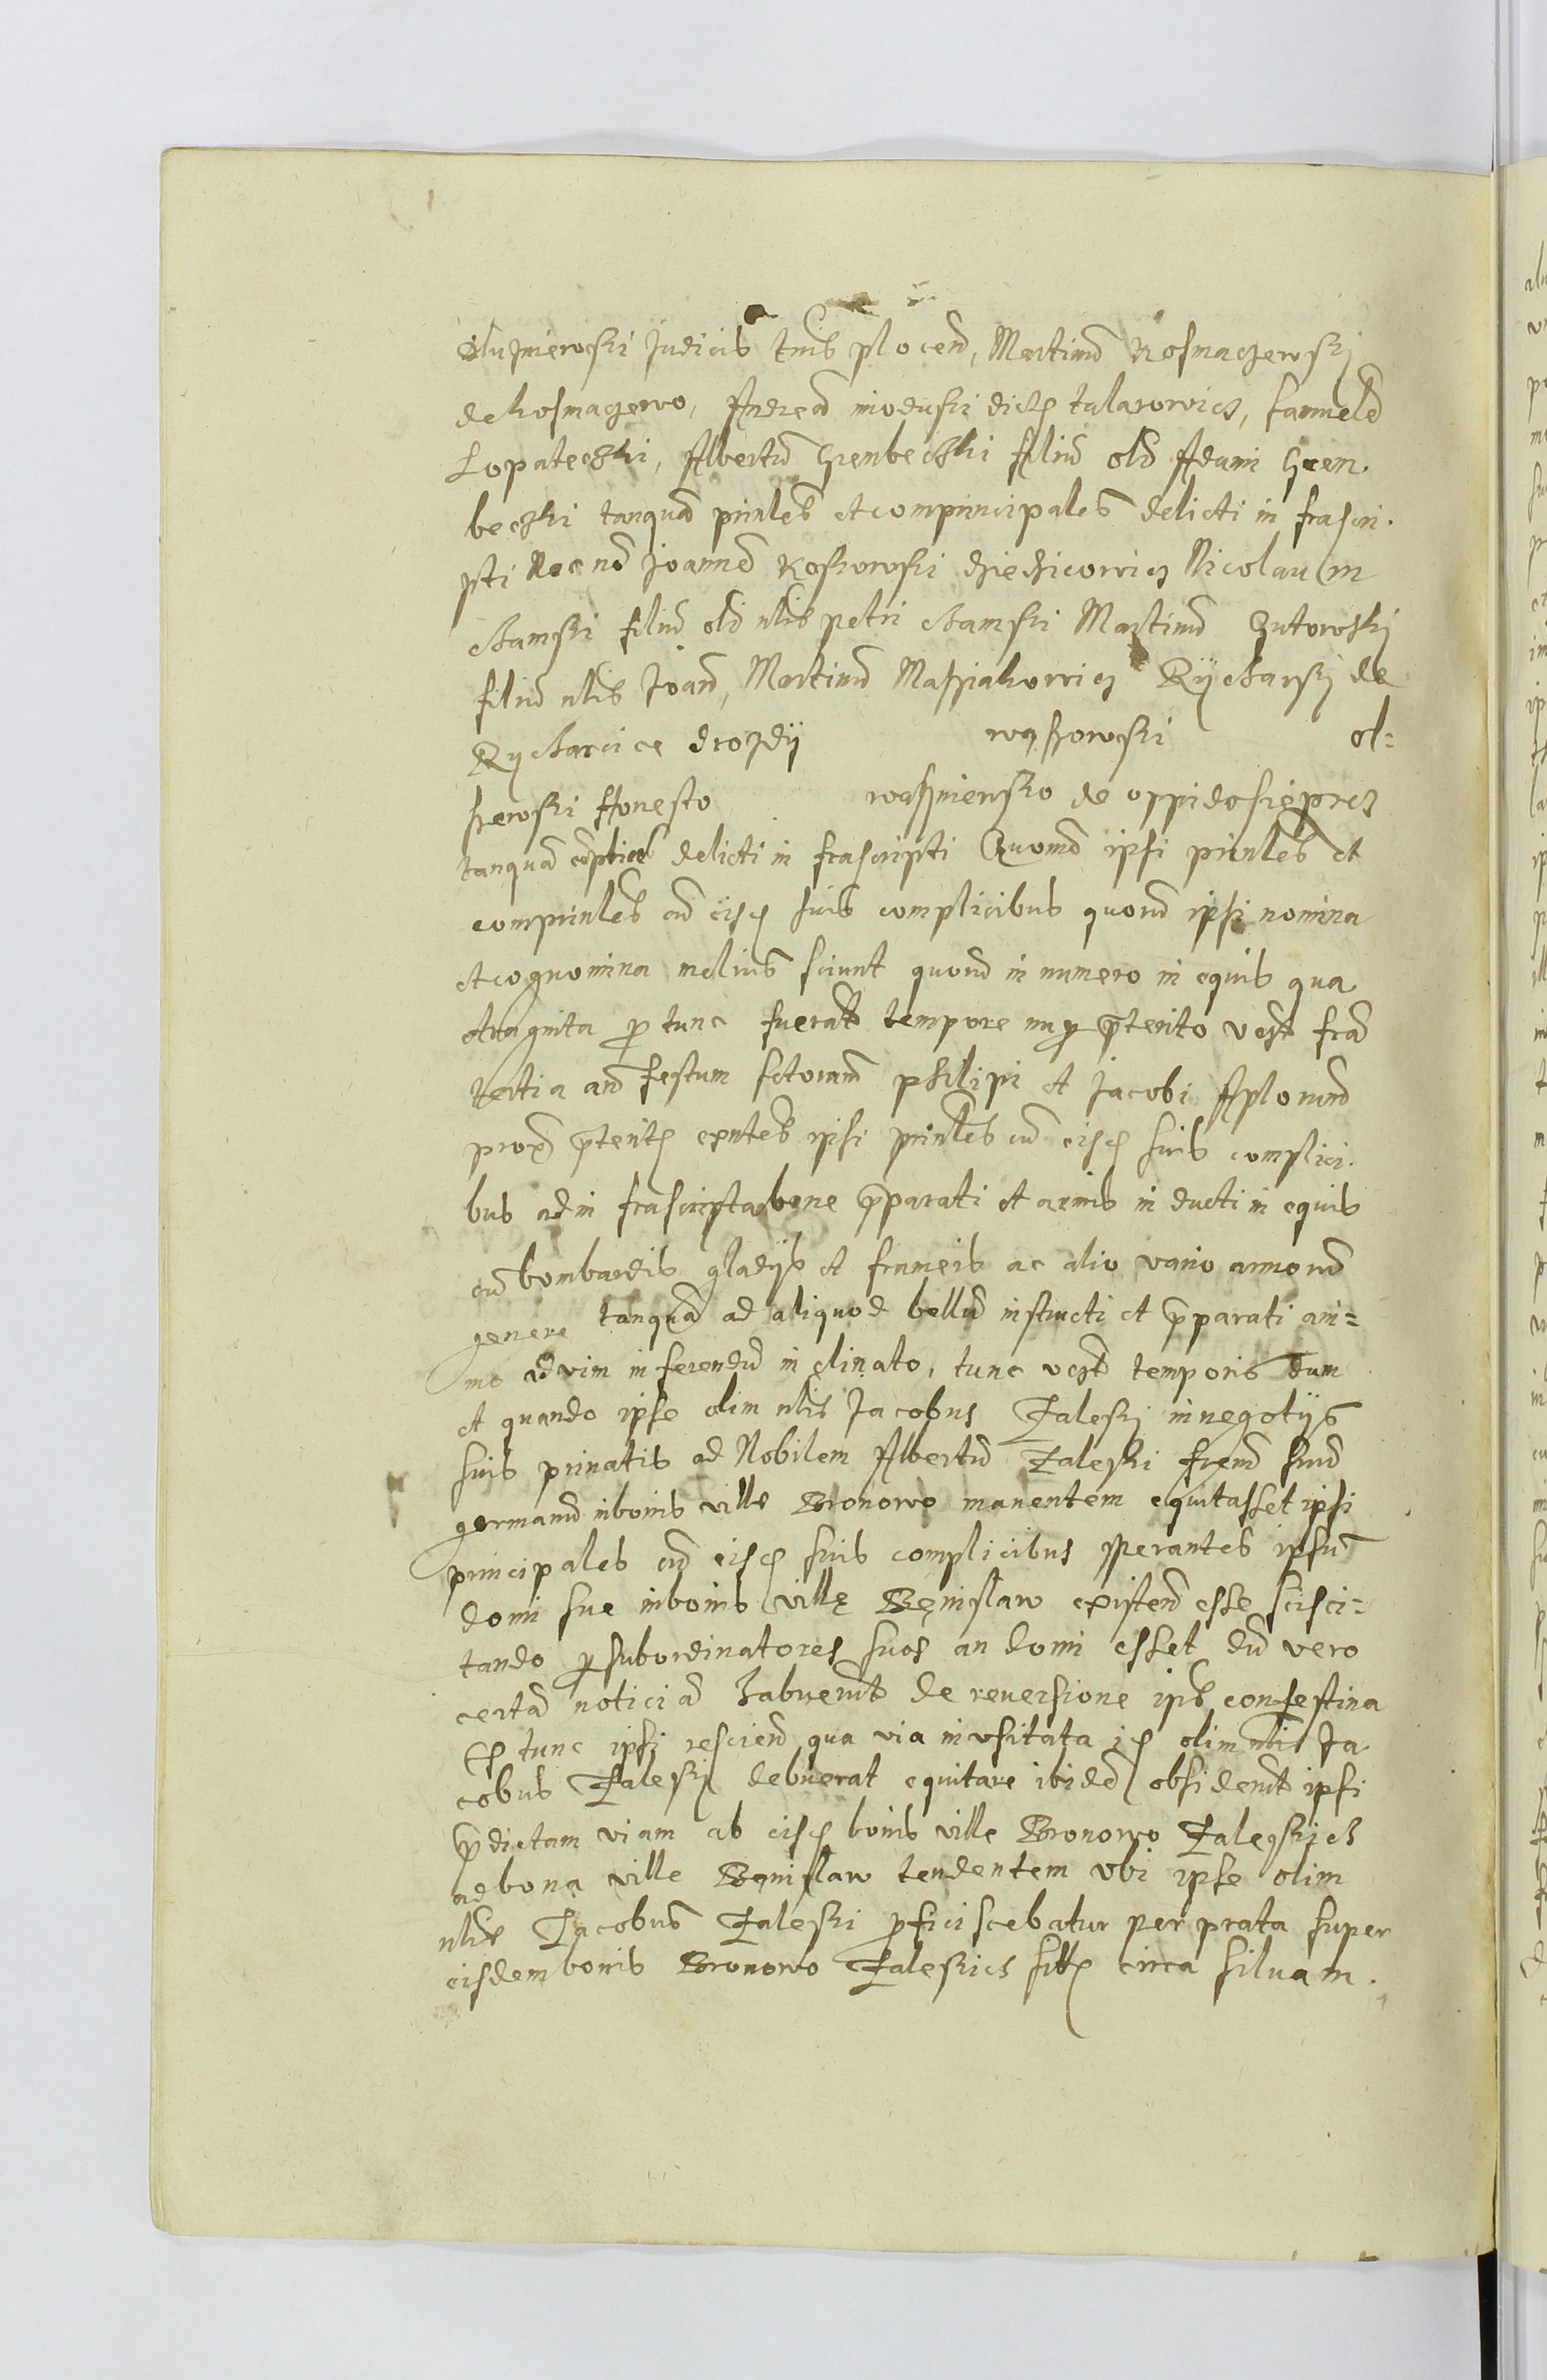 Judicis trris plocen, Martinu Kosmaczewskj
de kosmaczewo, Andrea dictu talarowicz, Samuele
Lopateczki, Albertu Grenbeczki filiu oli Adami Gren.
beczki tanqua prinles et comprincipales delicti in frascri.
pti Nec no Joanne Koskowski dziedzicowicz Nicolaum
chamski filiu oli nlis petri chamski Martinu Gutowskj
filiu nlis Joan, Martinu Maskiakowicz Rÿcharskj de
Rycharcice drozdÿ waskowski ol=
szewski Honesto de oppido sieprcz
tanqua coplices delicti in frascripti Quomo ipsi prinles et
comprinles cu eisq suis complicibus quoru ipsi nomina
et cognomina melius sciunt quoru in numero in equis qua
draginta p tunc fuerat tempore nup pterito vest fria
tertia an festum sctorum philipi et Jacobi Aplorum
prox pterit exntes ipsi prinles cu eisq suis complici.
bus ad in frascripta bene pparati et armis in ducti in equis
cu bombardis gladijs et frameis ac alio vario armoru
genere tanqua ad aliquod bellu instructi et pparati ani=
mo ad vim in ferendu in clinato, tunc vest temporis dum
et quando ipse olim nlis Jacobus Zaleskj in negotijs
suis priuatis ad Nobilem Albertu Zaleski frem suu
germanu in bonis ville Bronowo manentem equitasset ipsi
principales cu eisq suis complicibus sperantes ipsu
domi sue in bonis ville Bęnislaw existen esse scisci=
tando p subordinatores suos an domi esset du vero
certa noticia habuerut de reuersione ips confestina
Ex tunc ipsi rescien qua via in vsitata iq olim nlis Ja
cobus Zaleskj debuerat equitare ibide obsiderut ipsi
pdictam viam ab eisq bonis ville Bronowo Zaleskich
ad bona ville Benislaw tendentem vbi ipse olim
nlis Jacobus Zaleski pficiscebatur per prata super
eisdem bonis Bronowo Zaleskich sitq circa siluam.